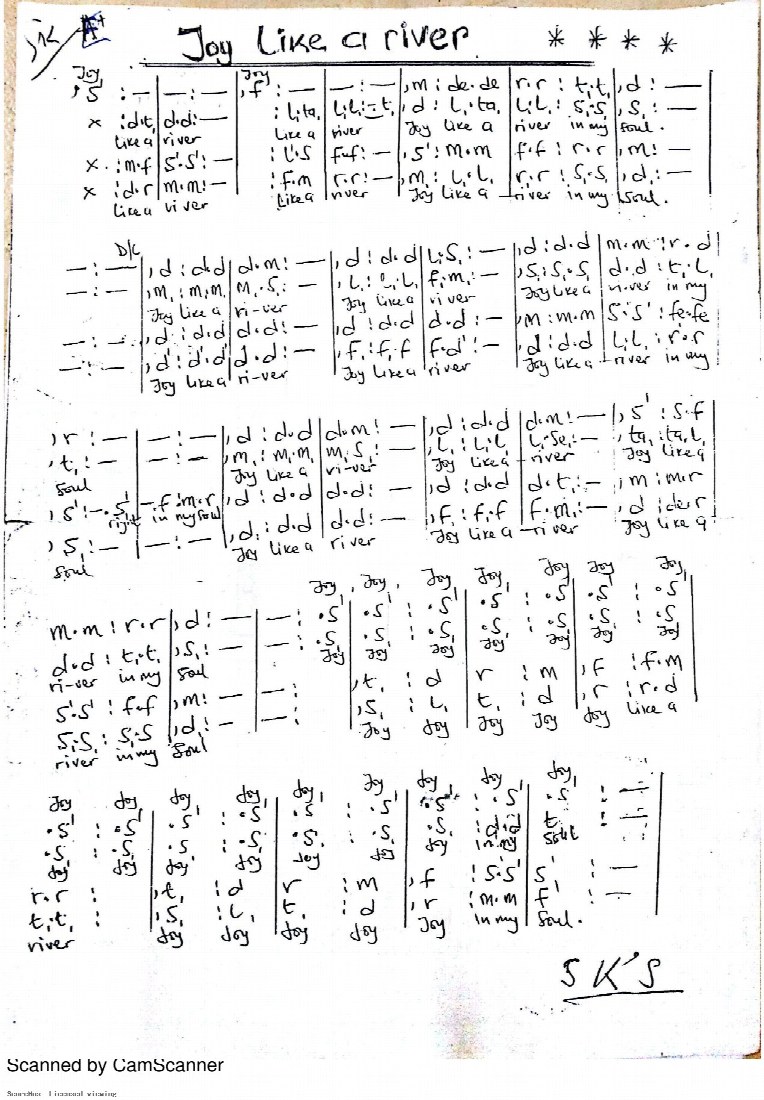 Joy Like a river * * * *
Joy Joy
, s : — | — : — | , f : — | — : — | , m : de . de | r . r : t, . t, | , d : —
x : d . t, | d . d : — | : l, . ta, | l, . l, : — t, | , d : l, . ta, | l, . l, : s, . s, | , s, : —
Like a river Like a river Joy like a river in my Soul.
x . : m . f | s' . s' : — | : l' . s | f . f : — | , s' : m . m | f . f : r . r | , m : —
x : d . r | m . m : — | : f . m | r . r : — | , m, : l, . l, | r . r : s, . s, | , d, : —
Like a river Like a river Joy like a river in my Soul.
D/C
— : — | , d : d . d | d . m : — | , d : d . d | l, . s, : — | , d : d . d | m . m : r . d
— : — | , m, : m, . m, | m, . s, : — | , l, : l, . l, | f, . m, : — | , s, : s, . s, | d . d : t, . l,
Joy like a ri-ver Joy like a river Joy like a river in my
— : — | , d : d . d | d . d : — | , d : d . d | d . d : — | , m : m . m | s' . s' : fe . fe
— : — | , d' : d' . d' | d . d : — | , f, : f, . f | f . d' : — | , d : d . d | l, . l, : r . r
Joy like a ri-ver Joy like a river Joy like a river in my
, r : — | — : — | , d : d . d | d . m : — | , d : d . d | d . m : — | , s' : s . f
, t, : — | — : — | , m, : m, . m, | m, . s, : — | , l, : l, . l, | l, . se, : — | , ta, : ta, . l,
Soul Joy like a ri-ver Joy like a river Joy like a
, s' : — . s' | — f : m . r | , d : d . d | d . d : — | , d : d . d | d . t, : — | , m : m . r
right in my soul
, s, : — | — : — | , d : d . d | d . d : — | , f, : f, . f | f . m, : — | , d : de . r
Soul Joy like a river Joy like a river Joy like a
Joy, Joy, Joy Joy, Joy Joy Joy,
m . m : r . r | , d : — | — : . s' | . s' : . s' | . s' : . s | . s : . s
d . d : t, . t, | , s, : — | — : . s, | . s, : . s, | . s, : . s, | . s, : . s,
ri-ver in my Soul Joy Joy Joy, Joy, Joy Joy, Joy,
s' . s' : f . f | , m : — | — : | , t, : d | r : m | , f : f . m
s, . s, : s, . s | , d : — | — : | , s, : l, | t, : d | , r : r . d
river in my Soul Joy Joy Joy Joy Joy like a
Joy Joy, Joy, Joy, Joy, Joy Joy, Joy, Joy,
. s' : . s' | . s' : . s | . s' : . s' | . s' : . s' | . s' : —
. s, : . s, | . s, : . s | . s, : . s, | . s, : d . d | t : —
Joy, Joy, Joy, Joy, Joy Joy Joy in my soul
r . r : | , t, : d | r : m | , f : s . s' | s' : —
t, . t, : | , s, : l, | t, : d | , r : m . m | f' : —
river Joy Joy Joy Joy Joy in my Soul.
SK'S
Scanned by CamScanner